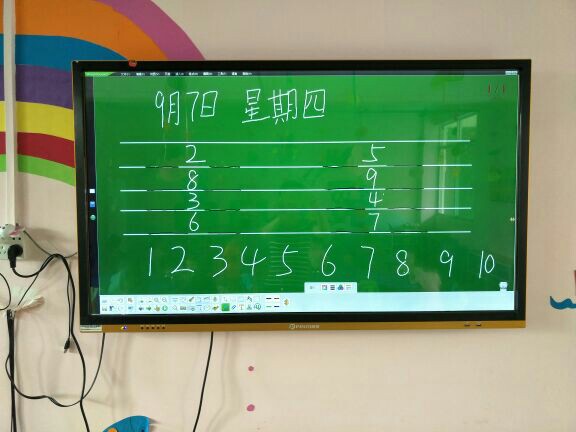 9月7日 星期四
1/1
2 5
8 9
3 4
6 7
1 2 3 4 5 6 7 8 9 10